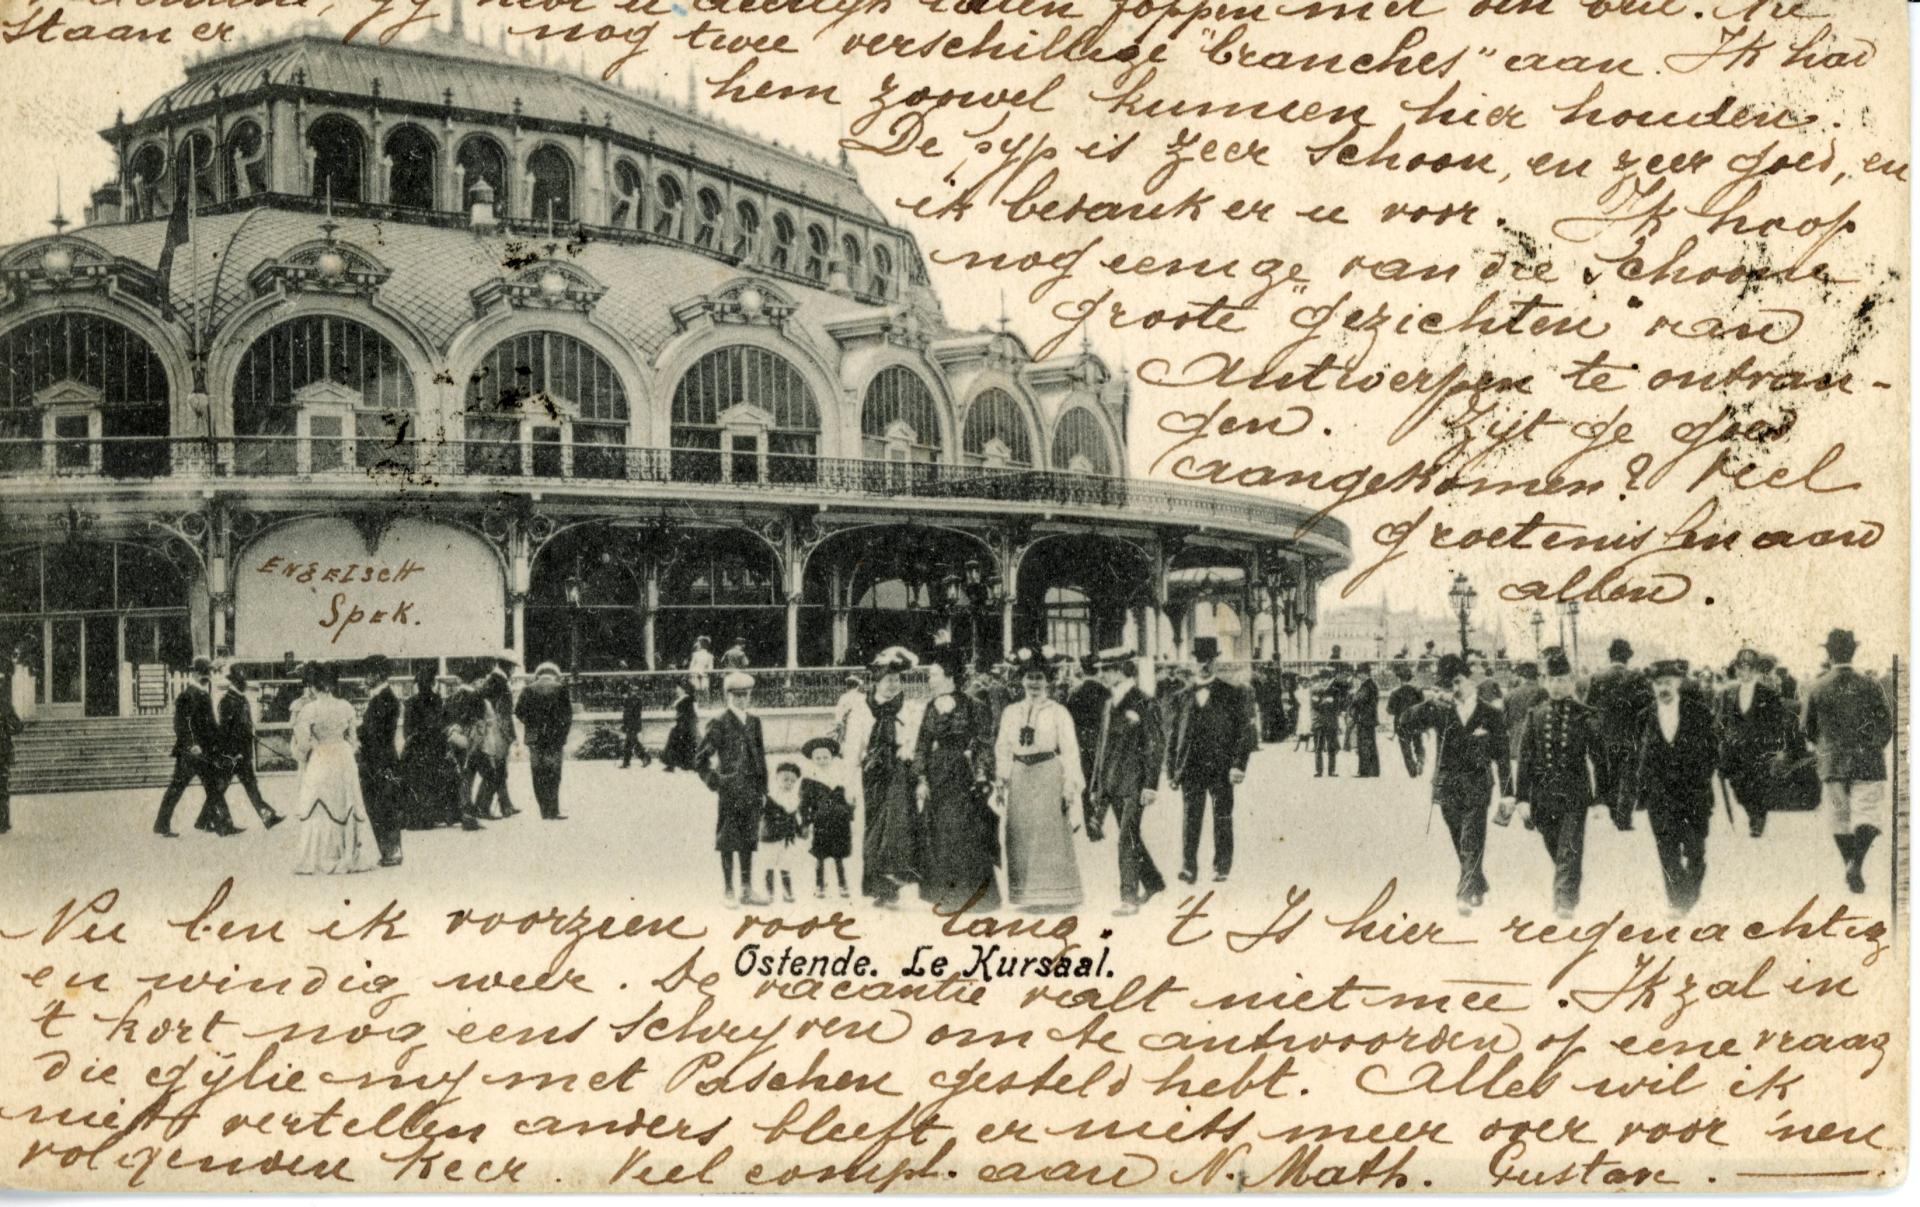 gy hebt u deerlyk laten foppen met den bril. Nu
staan er nog twee verschillige "branches" aan. Ik had
hem zoowel kunnen hier houden.
De pyp is zeer schoon, en zeer goed, en
ik bedank er u voor. Ik hoop
nog eenige van die schoone
groote "gezichten" van
Antwerpen te ontvan-
gen. Zyt ge goed
aangekomen? Veel
groetenissen aan
allen.
ENGELSCH
SPEK.
Nu ben ik voorzien voor lang. 't Is hier regenachtig
Ostende. Le Kursaal.
en windig weer. De vacantie valt niet mee. Ik zal in
't kort nog eens schryven om te antwoorden op eene vraag
die gylie my met Paschen gesteld hebt. Alles wil ik
niet vertellen anders bleeft er niets meer over voor 'nen
volgenden keer. Veel compl. aan N. Math. Gustav.